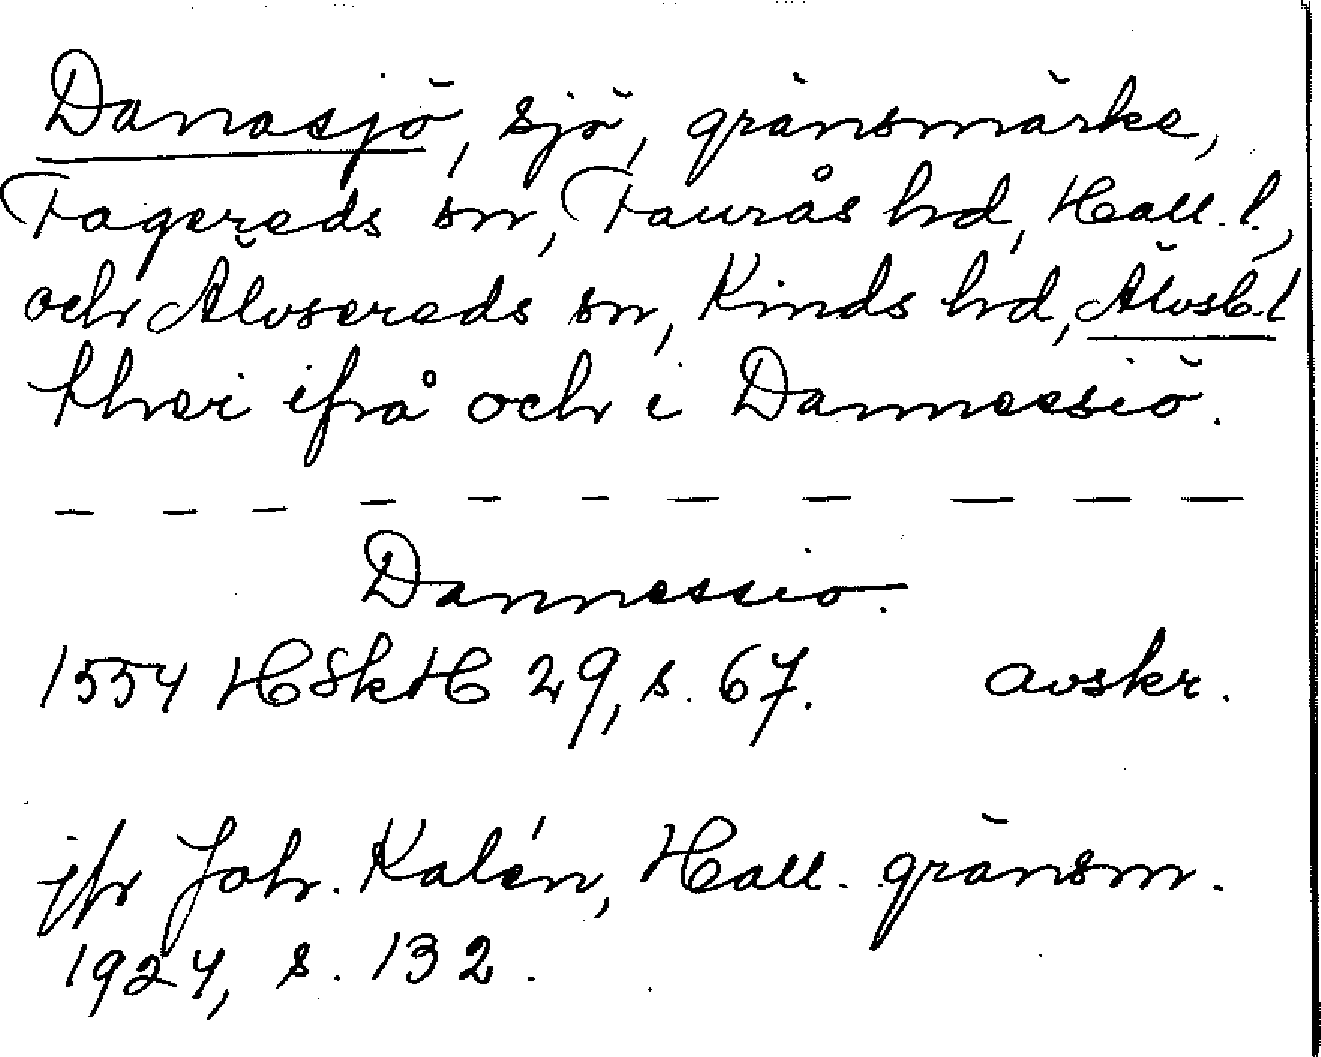 Danasjö, sjö, gränsmärke,
Fagereds sn, Faurås hd, Hall. l.,
och Älvsereds sn, Kinds hd, Älvsb. l
ther ifrå och i Dannessiö.
— — — — — — — — — — —
Dannessio.
1554 HSkH 29, s. 67. avskr.
jfr Joh. Kalén, Hall. gränsm.
1924, s. 132.